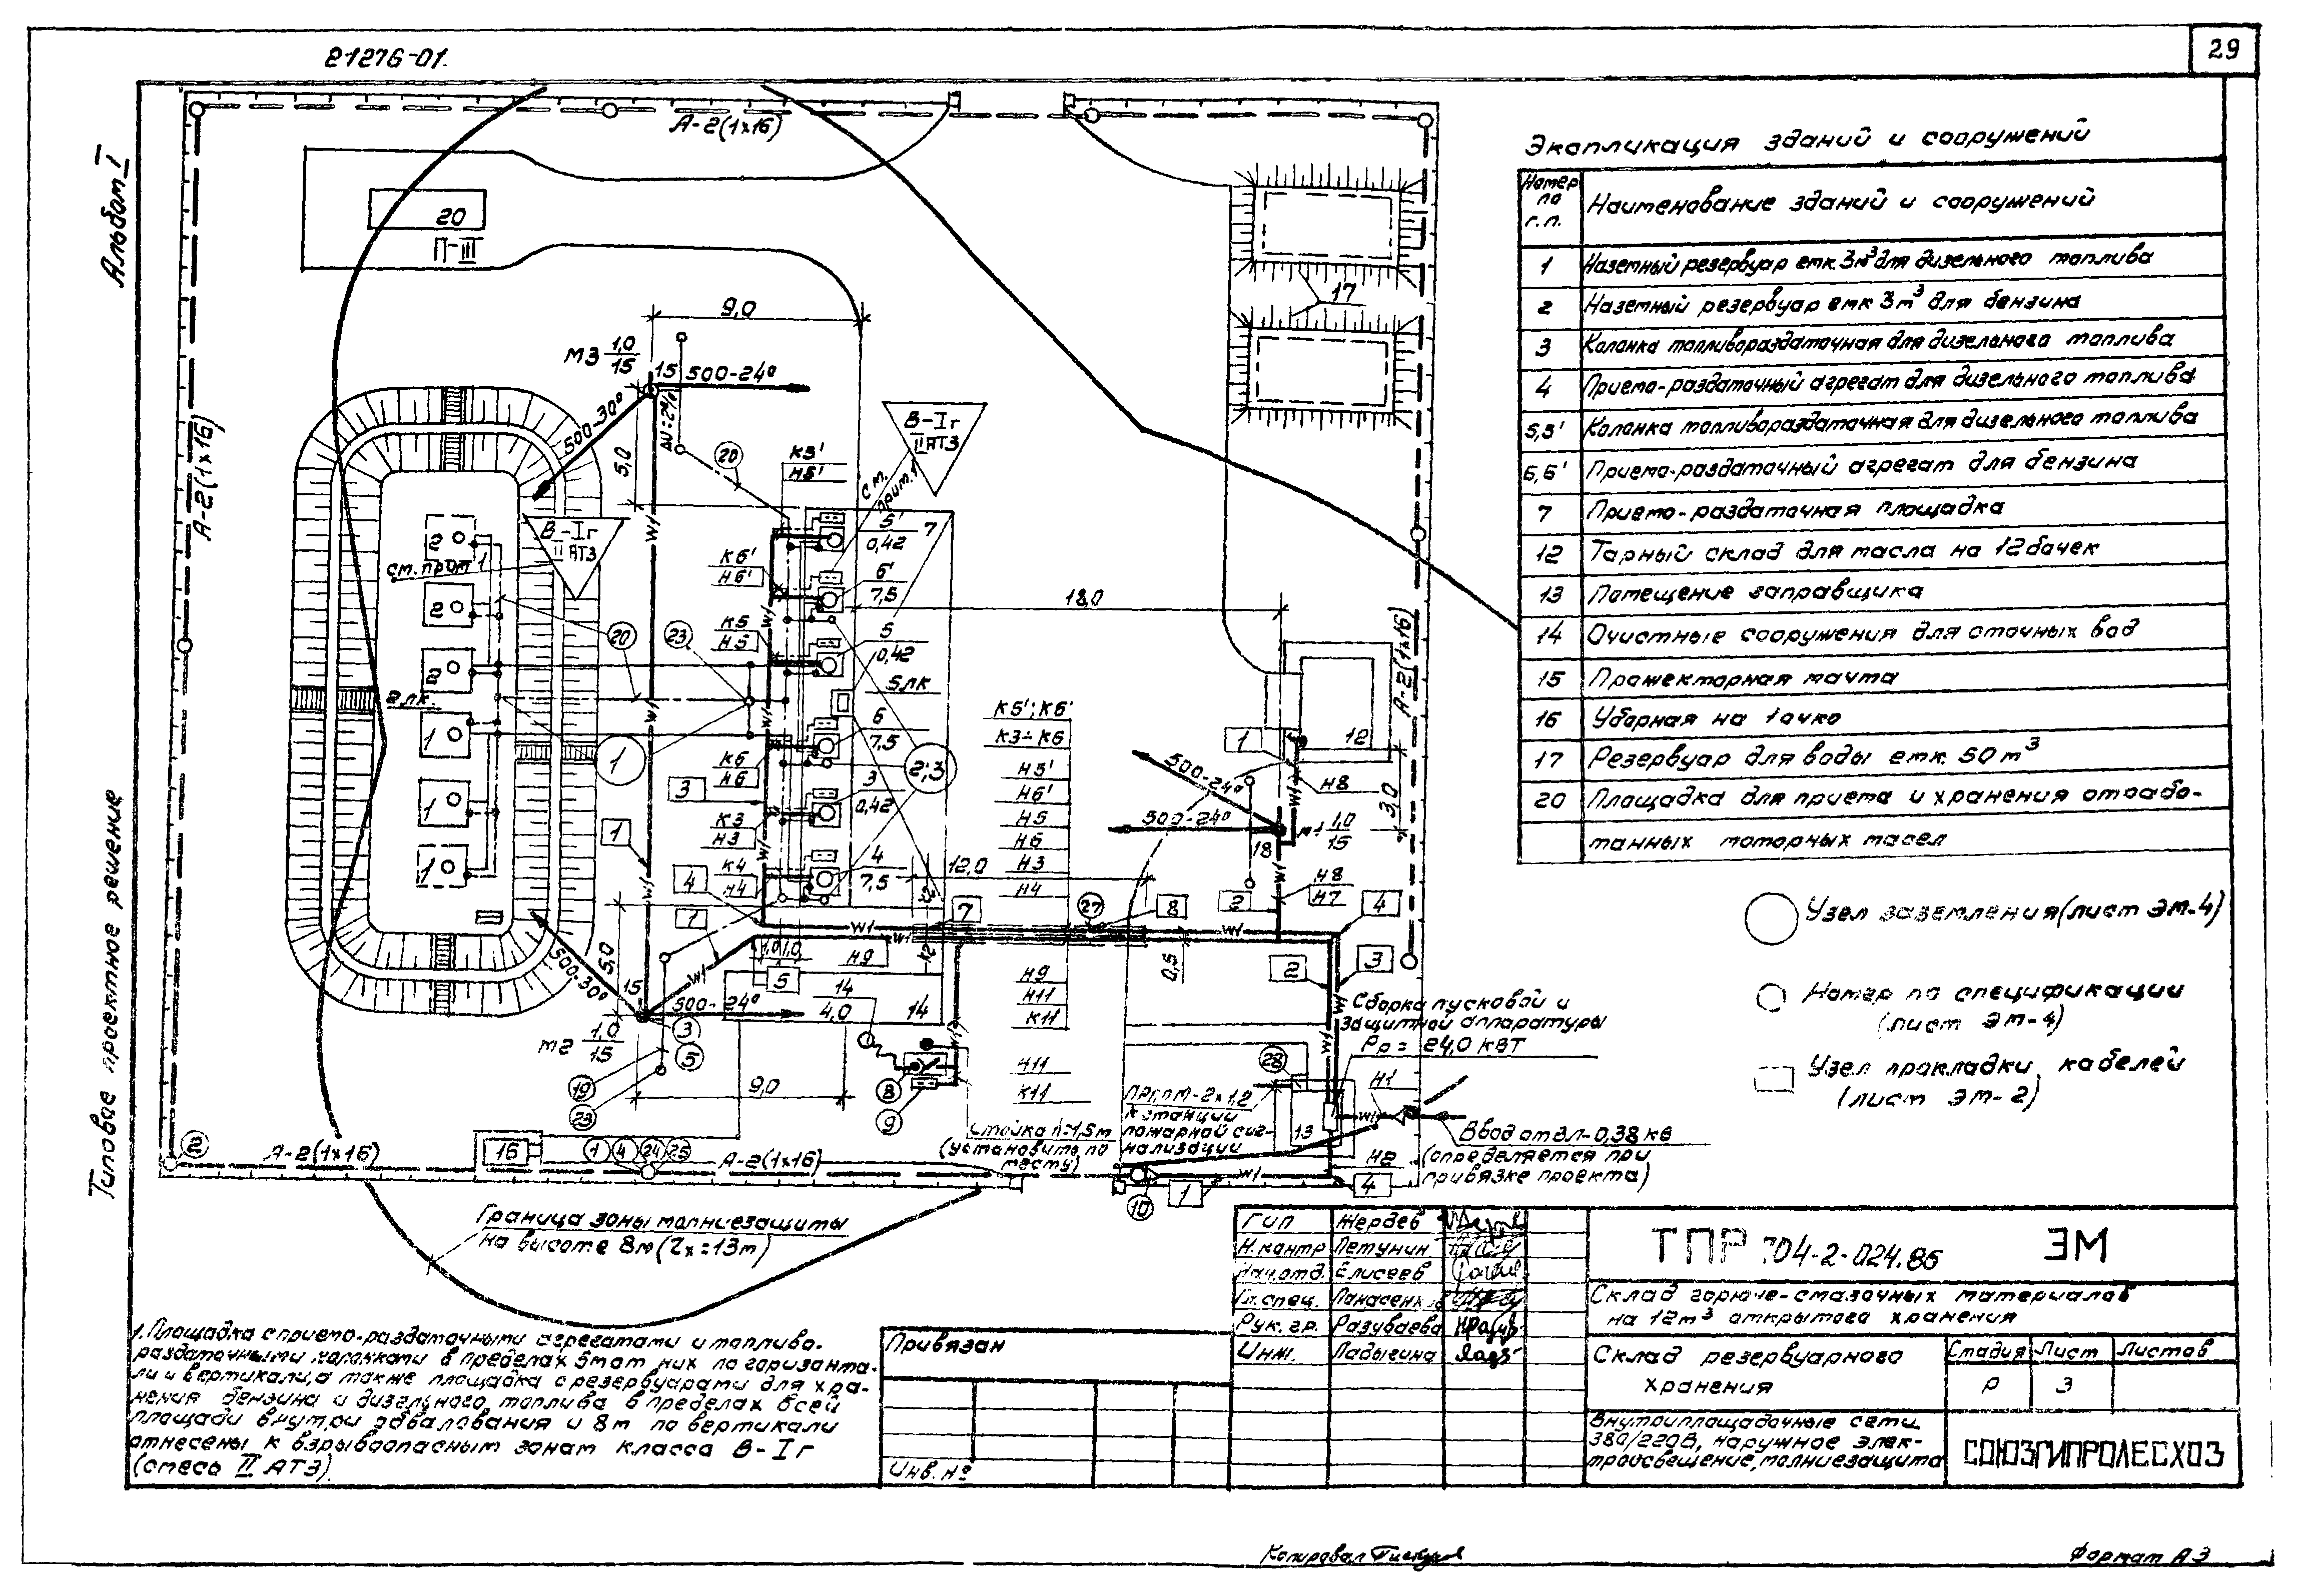 21276-01.
29
Альбом I
Типовое проектное решение
А-2(1х16)
20
П-III
9,0
М3 1,0/15
15
500-24°
500-30°
5,0
20
К5'
Н5'
В-Iг
II АТЗ
см.
прим.1
В-Iг
II АТЗ
см. прим 1
А-2(1х16)
17
5'
0,42
7
К6'
Н6'
6'
7,5
18,0
К5
Н5
5
0,42
20
23
5 лк
2 лк.
2
2
2
1
1
1
1
6
7,5
2;3
К6
Н6
3
3
0,42
К3
Н3
1
4
К4
Н4
4
7,5
1
К5';К6'
К3÷К6
Н5'
Н6'
Н5
Н6
Н3
Н4
12,0
7
27
8
1
12
Н8
500-24°
500-24°
М1 1,0/15
3,0
18
А-2(1х16)
2
Н8
Н7
4
0,5
2
3
5,0
500-30°
15
500-24°
М2 1,0/15
3
5
1,0
1,0
5
Н9
14
4,0
14
Н9
Н11
К11
Н11
К11
9,0
19
23
8
9
Сборка пусковой и
защитной аппаратуры
Рр = 24,0 кВт
28
Н1
ПРППМ-2х1,2
к станции
пожарной сиг-
нализации
Стойка h=1,5м
(установить по
месту)
13
Ввод от ВЛ-0,38 кв
(определяется при
привязке проекта)
Н2
4
1
10
2
А-2(1х16)
16
1
4
24
25
А-2(1х16)
Граница зоны молниезащиты
на высоте 8м (Zх=13м)
Экспликация зданий и сооружений
Номер по г.п.
Наименование зданий и сооружений
1 Наземный резервуар емк. 3м³ для дизельного топлива
2 Наземный резервуар емк 3м³ для бензина
3 Колонка топливораздаточная для дизельного топлива
4 Приемо-раздаточный агрегат для дизельного топлива
5,5' Колонка топливораздаточная для дизельного топлива
6,6' Приемо-раздаточный агрегат для бензина
7 Приемо-раздаточная площадка
12 Тарный склад для масла на 12 бочек
13 Помещение заправщика
14 Очистные сооружения для сточных вод
15 Прожекторная мачта
16 Уборная на 1 очко
17 Резервуар для воды емк. 50 м³
20 Площадка для приема и хранения отрабо-
танных моторных масел
Узел заземления (лист ЭМ-4)
Номер по спецификации
(лист ЭМ-4)
Узел прокладки кабелей
(лист ЭМ-2)
1. Площадка с приемо-раздаточными агрегатами и топливо-
раздаточными колонками в пределах 5м от них по горизонта-
ли и вертикали, а также площадка с резервуарами для хра-
нения бензина и дизельного топлива в пределах всей
площади внутри обвалования и 8м по вертикали
отнесены к взрывоопасным зонам класса В-Iг
(смесь II АТЗ).
Привязан
Инв. №
Гип Жердев
Н.контр Петунин
Нач.отд. Елисеев
Гл.спец. Панасенко
Рук. гр. Разуваева
Инж. Ладыгина
ТПР 704-2-024.86 ЭМ
Склад горюче-смазочных материалов
на 12м³ открытого хранения
Склад резервуарного
хранения
Стадия Лист Листов
Р 3
Внутриплощадочные сети
380/220В, наружное элек-
троосвещение, молниезащита
СОЮЗГИПРОЛЕСХОЗ
Копировал
Формат А3